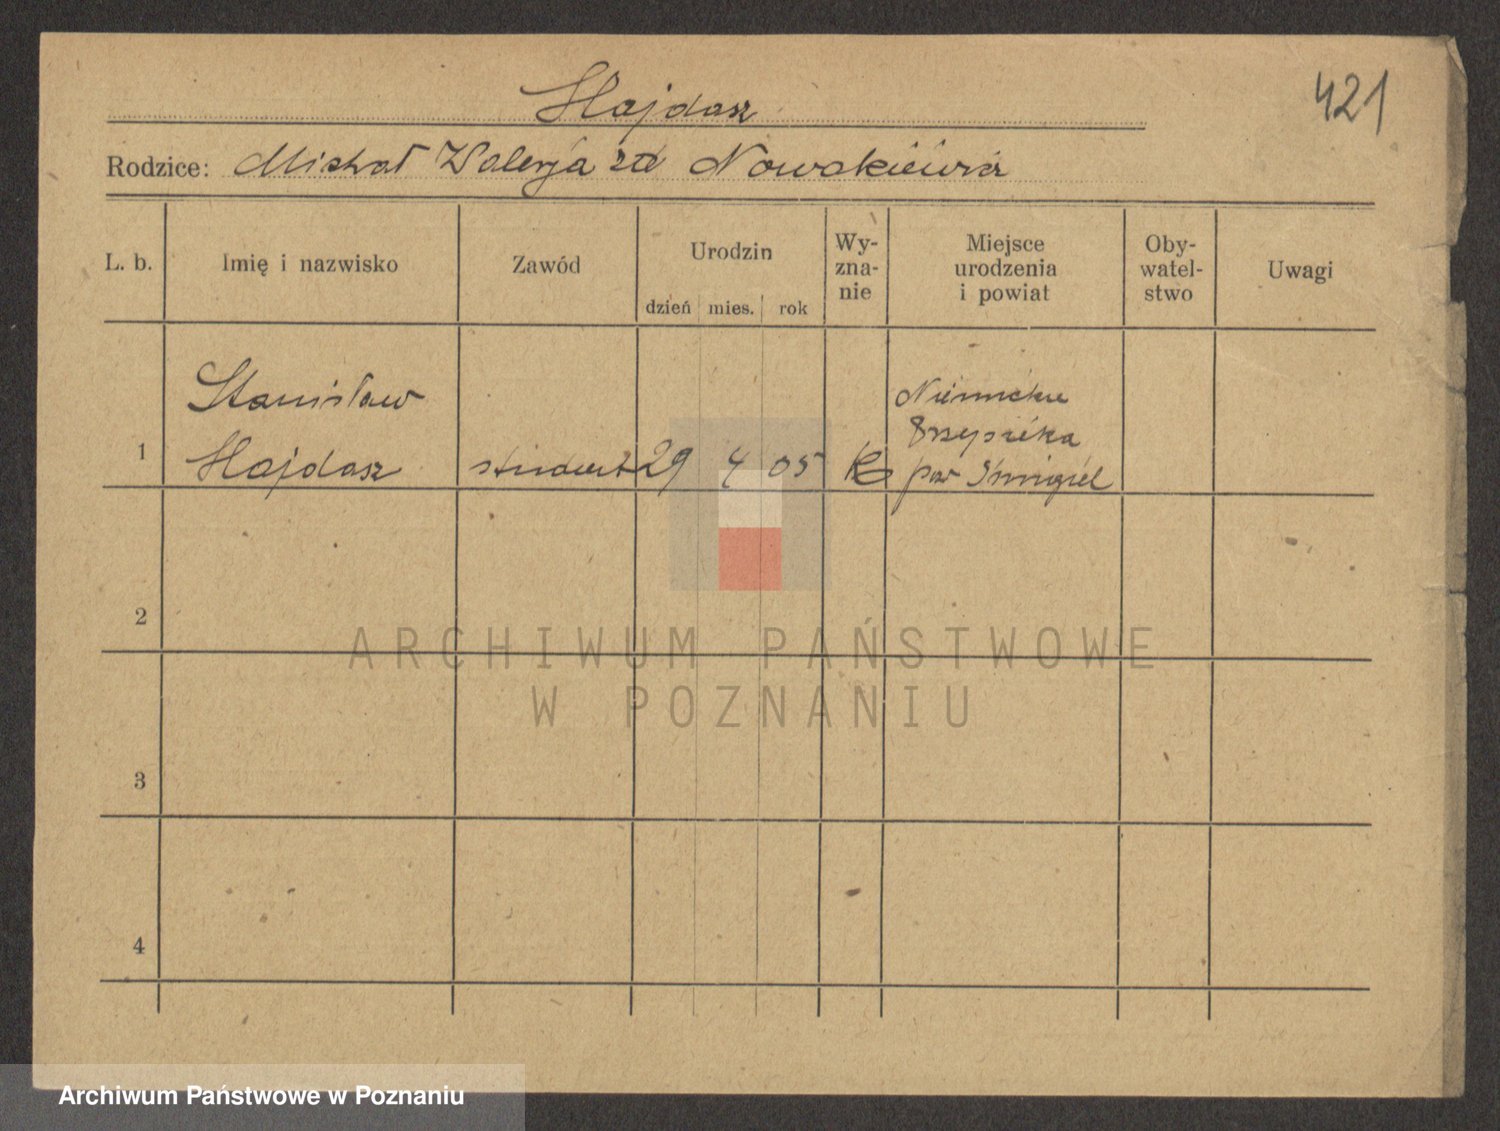 Hajdasz
421
Rodzice: Michał Walerja zd Nowakiewicz
L. b.
Imię i nazwisko
Zawód
Urodzin
dzień mies. rok
Wy-
zna-
nie
Miejsce
urodzenia
i powiat
Oby-
watel-
stwo
Uwagi
1
Stanisław
Hajdasz
student
29 4 05
Niemickie
pow Śmigiel
2
3
4
ARCHIWUM PAŃSTWOWE
W POZNANIU
Archiwum Państwowe w Poznaniu